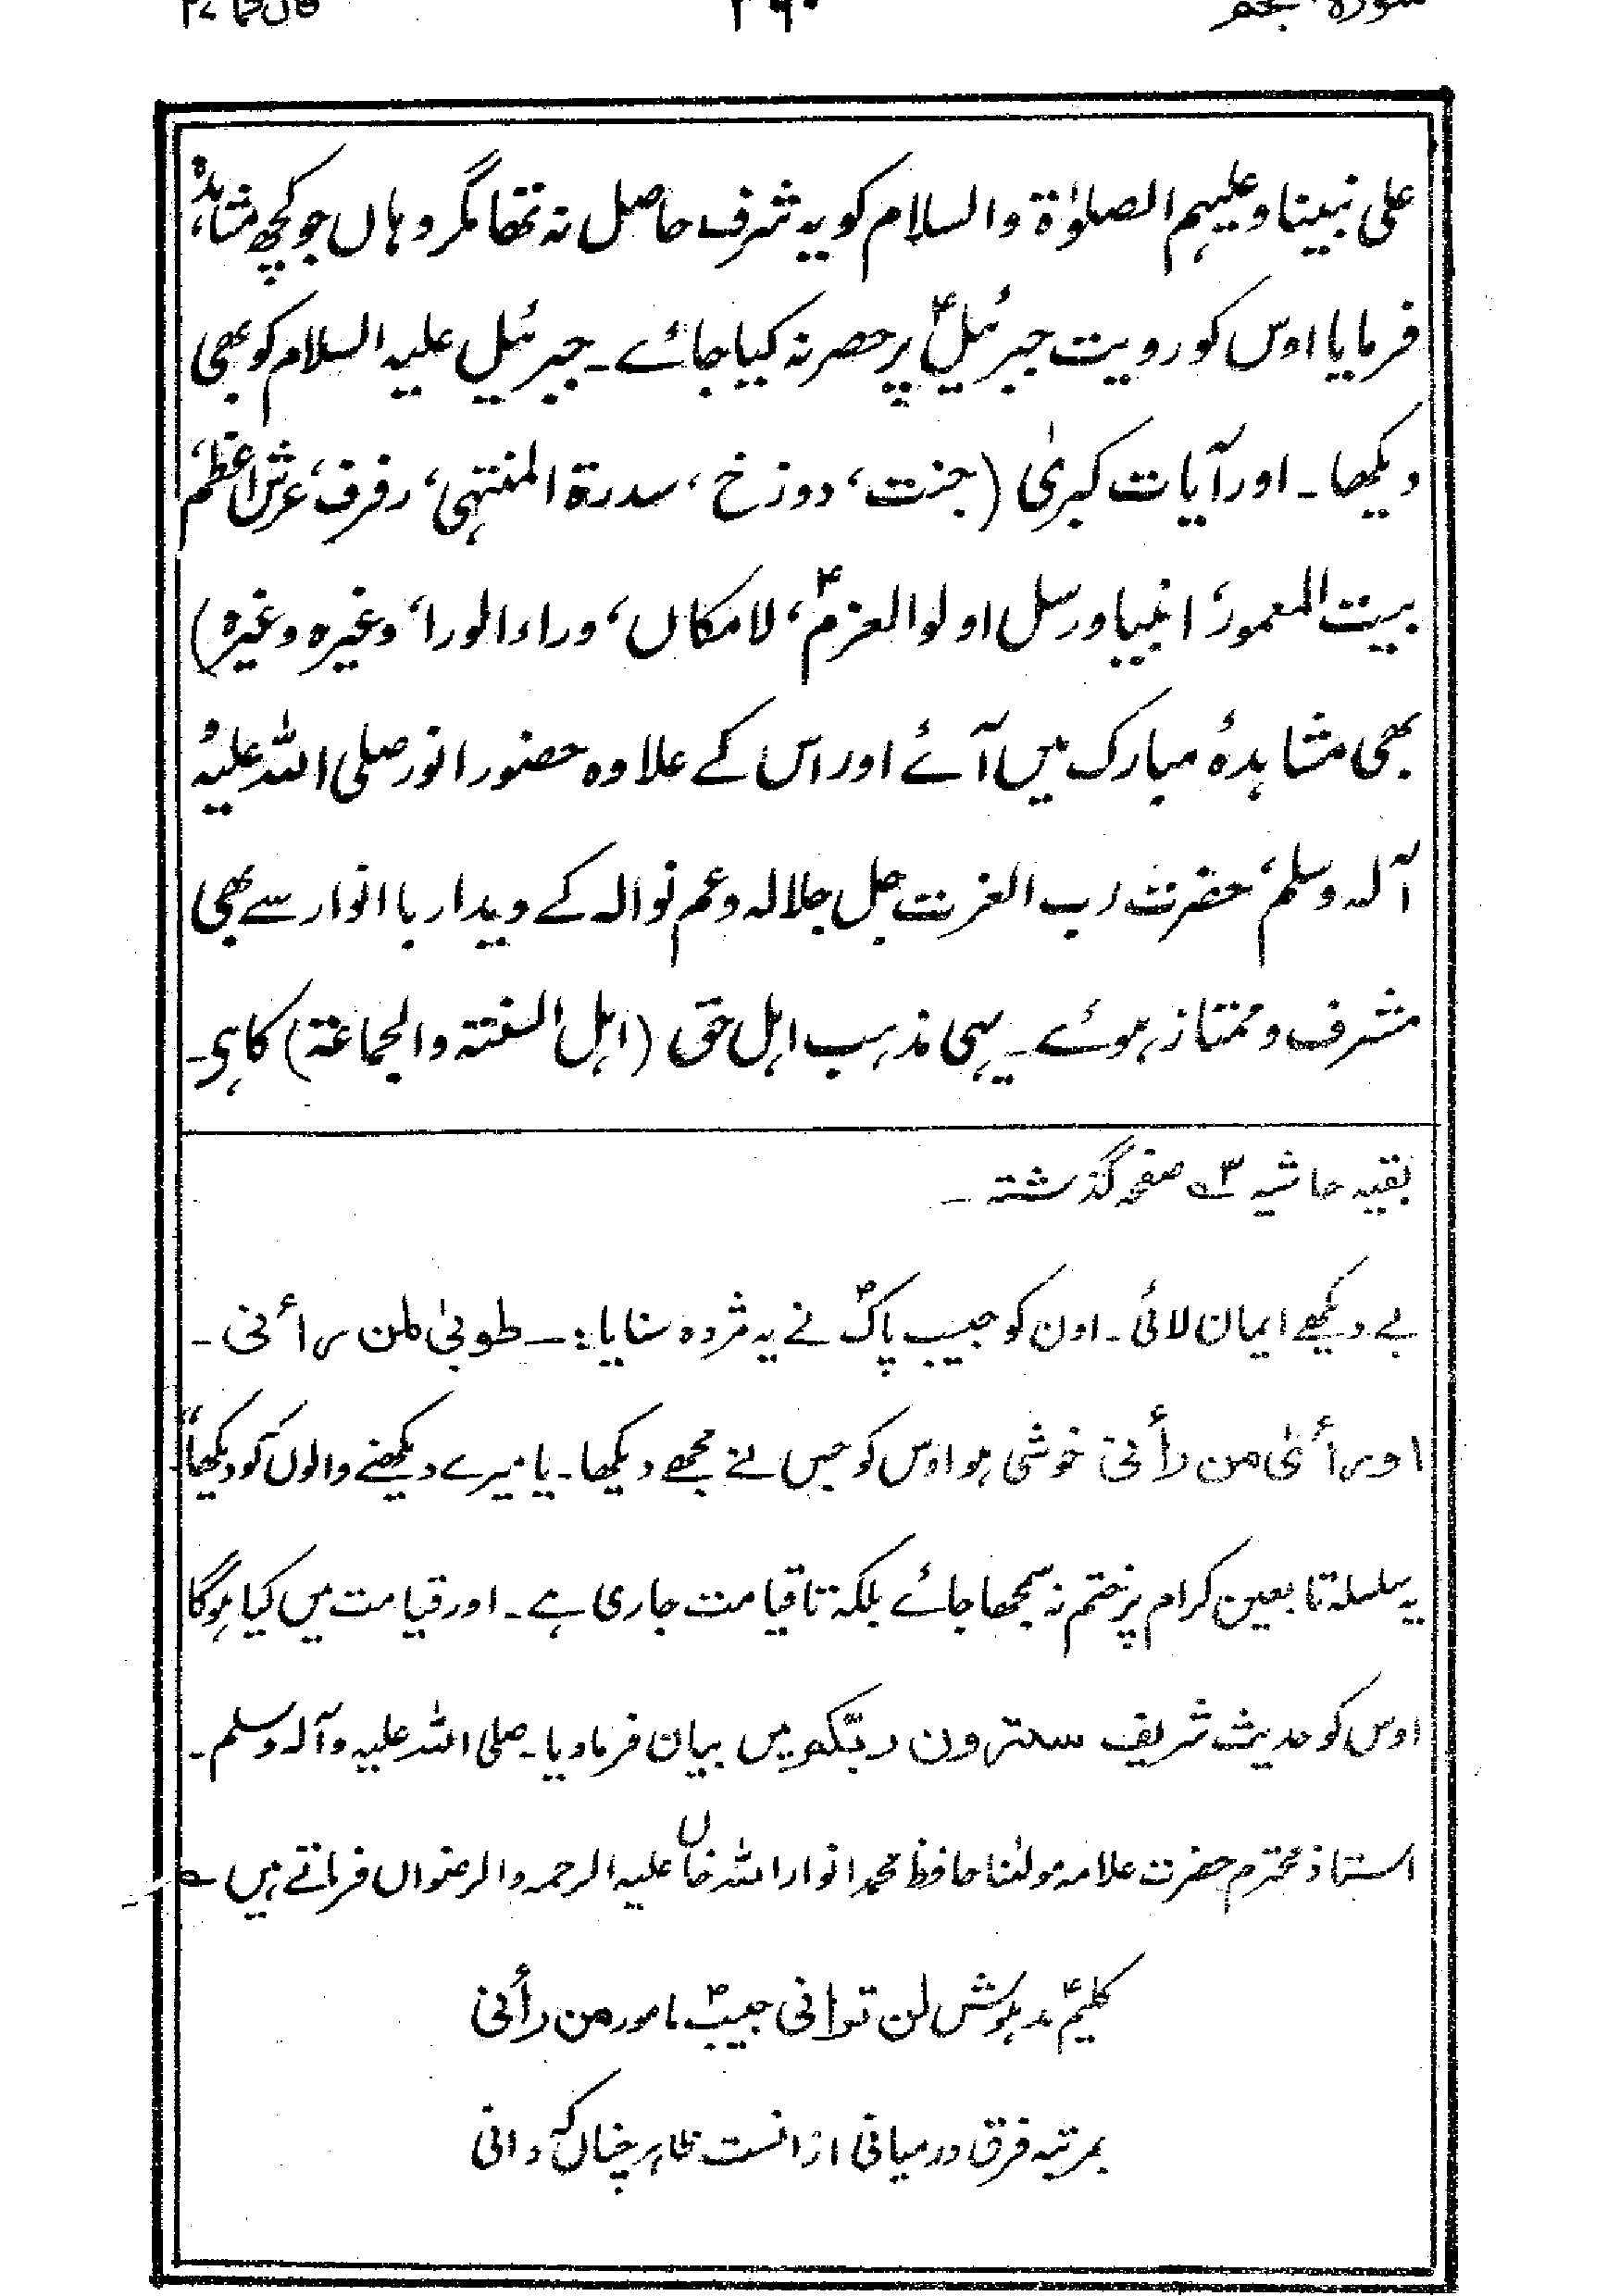 سورۂ نجم ۲۶۰
علی نبینا وعلیہم الصلوٰۃ والسلام کو یہ شرف حاصل نہ تھا مگر وہاں جو کچھ مشاہدہ
فرمایا اوس کو رویت جبرئیلؑ پر حصر نہ کیا جائے۔ جبرئیل علیہ السلام کو بھی
دیکھا۔ اور آیات کبریٰ (جنت، دوزخ، سدرۃ المنتہی، رفرف، عرش اعظم،
بیت المعمور، انبیا ورسل اولوالعزمؑ، لامکاں، وراء الورا، وغیرہ وغیرہ)
بھی مشاہدۂ مبارک میں آئے اور اس کے علاوہ حضور انور صلی اللہ علیہ و
آلہ وسلم، حضرت رب العزت جل جلالہ وعم نوالہ کے دیدار با انوار سے بھی
مشرف وممتاز ہوئے۔ یہی مذہب اہل حق (اہل السنتہ والجماعۃ) کا ہی۔
بقیہ حاشیہ ۳ صفحہ گذشتہ ۔
بے دیکھے ایمان لائی۔ اون کو حبیب پاکؐ نے یہ مژدہ سنایا:۔ طوبیٰ لمن رأنی۔
او رأیٰ من رأنی خوشی ہو اوس کو جس نے مجھے دیکھا۔ یا میرے دیکھنے والوں کو دیکھا"
یہ سلسلہ تابعین کرام پر ختم نہ سمجھا جائے بلکہ تا قیامت جاری ہے۔ اور قیامت میں کیا ہوگا
اوس کو حدیث شریف سترون ربکم میں بیان فرمادیا۔ صلی اللہ علیہ وآلہ وسلم۔
استاذ محترم حضرت علامہ مولٰنا حافظ محمد انوار اللہ خاں علیہ الرحمہ والرضواں فرماتے ہیں ؎
کلیمؑ مدہوش لن ترانی حبیبؐ مامور من رأنی
بمرتبہ فرق درمیانی ازانست ظاہر چناں کہ دانی